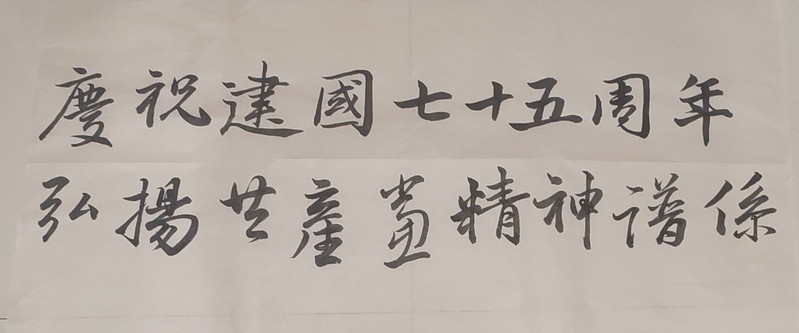 慶祝建國七十五周年
弘揚共產党精神譜係